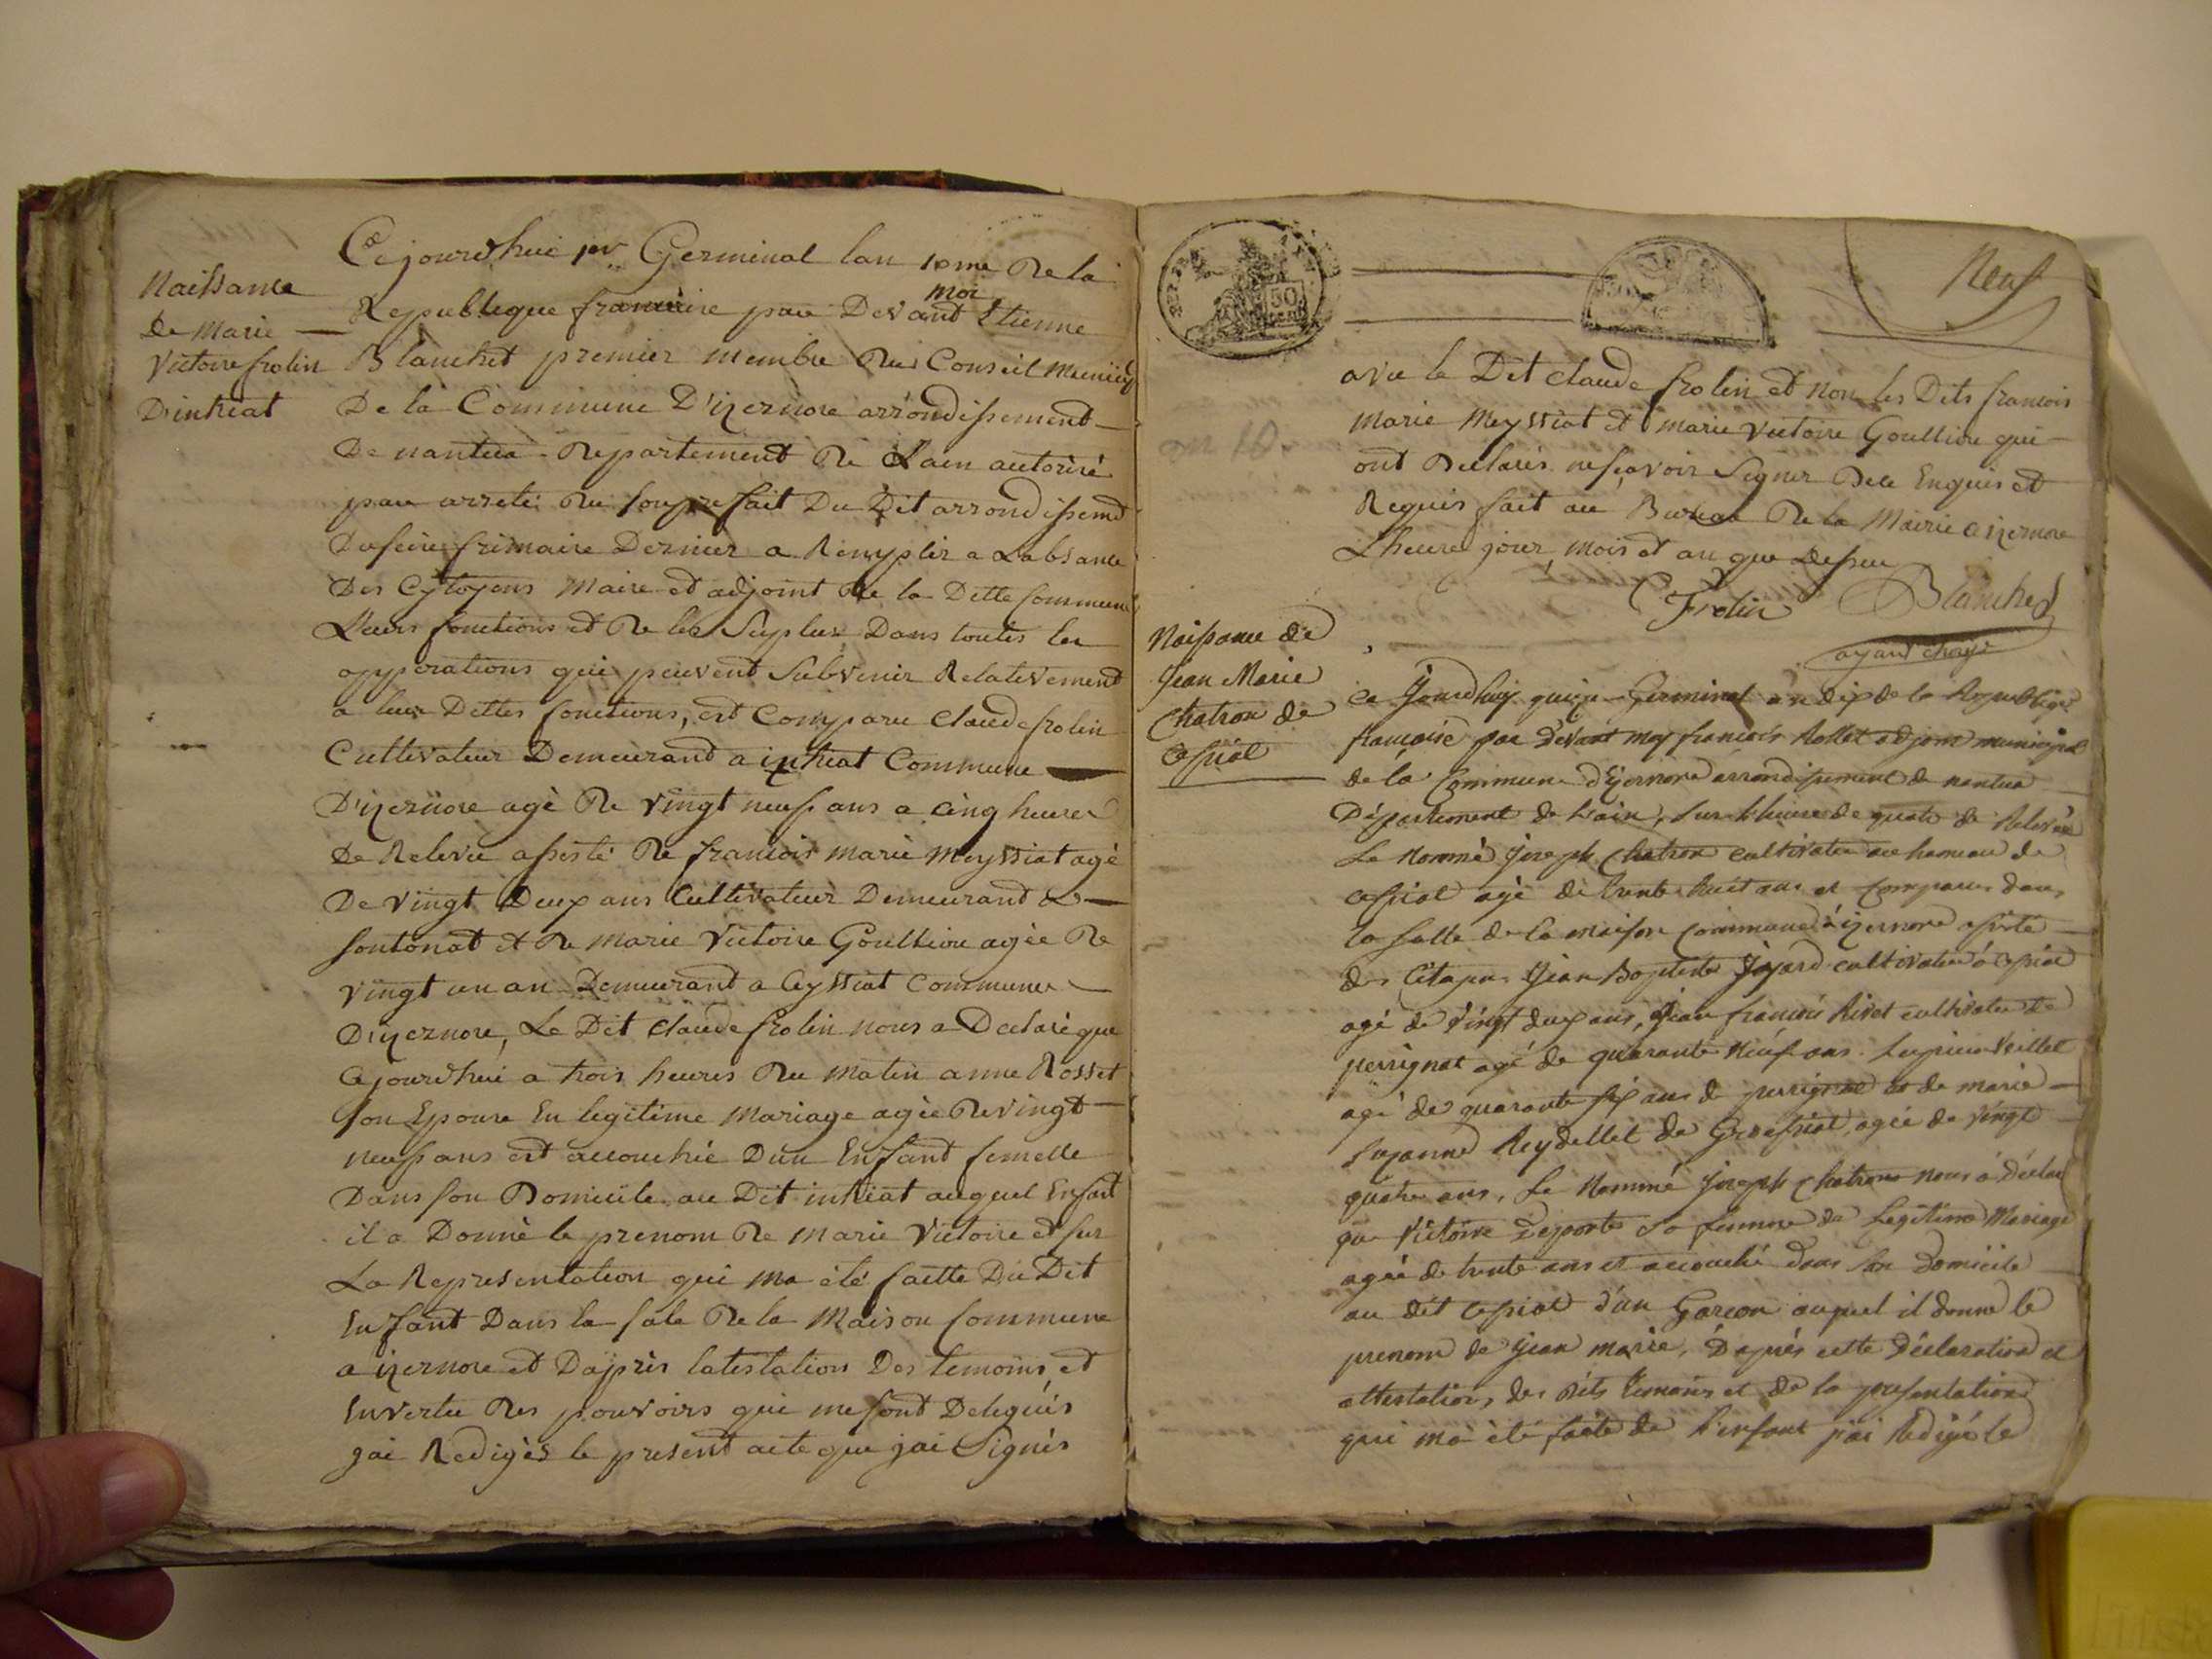 Naissance
de Marie
Victoire frolin
D'intriat
Cejourdhui 1er Germinal lan 10me de la
Republique francaise par Devant moi Etienne
Blanchet premier membre du Conseil Municip
De la Commune D'izernore arrondissement
De nantua Departement de Lain autorisé
par arreté du souprefait Du Dit arrondissemt
Duseize frimaire Dernier a Remplir a Labsance
Des Cytoyens Maire et adjoint de la Ditte Commune
Leurs fonctions et de les Supleer Dans toutes les
opperations qui peuvent Subvenir Relativement
a leur Dittes fonctions, est Comparu Claude frolin
Cultivateur Demeurand a intriat Commune
D'izernore agé de vingt neuf ans a cinq heures
De Relevée assisté de francois marie Meyssiat agé
De vingt Deux ans Cultivateur Demeurand a
sontonat et de marie Victoire Goullion agée de
vingt un an Demeurand a Ceyssiat Commune
D'izernore, Le Dit Claude frolin nous a Declaré que
Cejourdhui a trois heures du matin anne Rosset
son Epouse En legitime Mariage agée de vingt
neuf ans est accouchée D'un Enfant femelle
Dans son Domicile au Dit intriat auquel Enfant
il a Donné le prenom de Marie Victoire et sur
La Representation qui ma été faitte Du Dit
Enfant Dans la sale de la Maison Commune
a izernore et Daprès latestation Des temoins, et
Envertu des pouvoirs qui me sont Delegués
jai Redigés le present acte que jai Signés
Neuf
50
an 10
avec le Dit Claude frolin et non les Dits francois
Marie Meyssiat et marie victoire Goullion qui
ont Declarés ne sçavoir Signer De ce Enquis et
Requis fait au Bureau de la Mairie a izernore
Lheure jour, mois et an que Dessus
C Frolin Blanchet
Naissance de
Jean Marie
Chatron de
Cessiat
ce Jourdhuy quinze Germinal an dix de la Republique
francaise par devant moy francois Rollet adjoint municipal
de la Commune d'Izernore arrondissement de nantua
Département de Lain, sur lheure de quatre de Relevée
Le Nommé Joseph Chatron cultivateur au hameau de
cessiat agé de trente huit ans et comparus dans
la salle de la maison commune à izernore assisté
des Citoyens Jean Baptiste Jojard cultivateur à Cessiat
agé de vingt deux ans, Jean francois Rivet cultivateur de
perrignat agé de quarante neuf ans. Veillet
agé de quarante six ans de perrignat et de marie
Suzanne Reydellet de Groissiat, agée de vingt
quatre ans. Le Nommé Joseph Chatron nous a Déclaré
que Victoire Deporte sa femme de Legitime Mariage
agée de trente ans et accouché dans son domicile
au dit cessiat d'un Garcon auquel il donne le
prenom de Jean marie, D'aprés cette Déclaration et
attestation, des dits temoins et de la présentation
qui m'a été faite de l'enfant j'ai Rédigé le